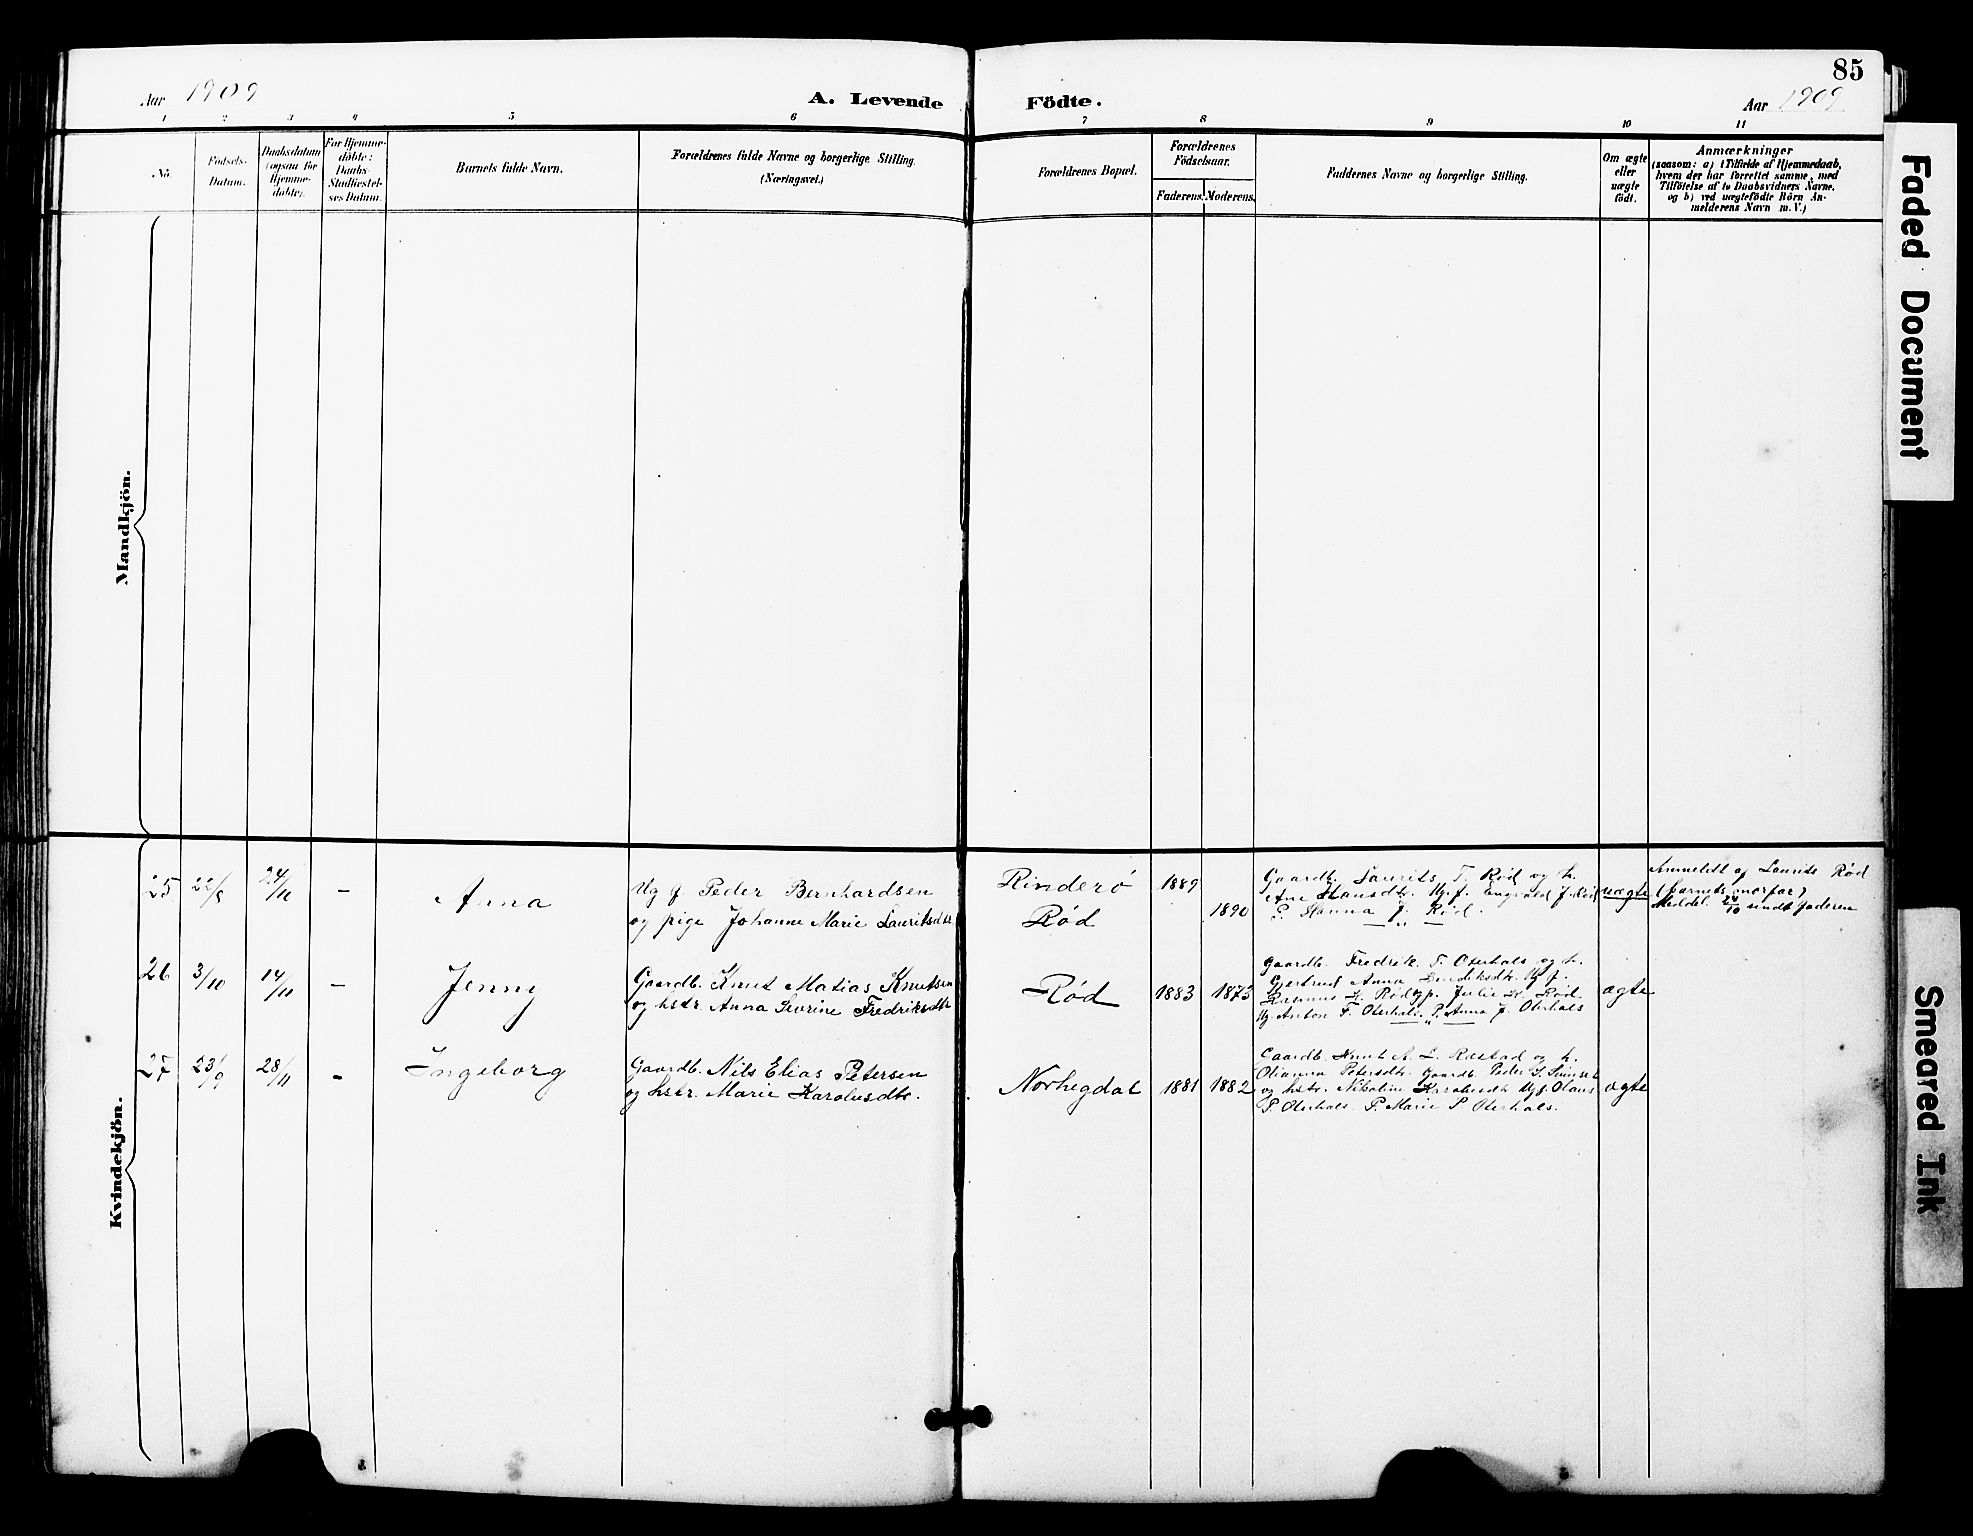 85
Aar 1909
A. Levende Födte.
Aar 1909
1 2 3 4 5 6 7 8 9 10 11
No.
Födsels-
Datum.
Daabsdatum
(ogsaa for
Hjemme-
döbte).
For Hjemme-
döbte:
Daabs-
Stadfæstel-
ses Datum.
Barnets fulde Navn.
Forældrenes fulde Navne og borgerlige Stilling.
(Næringsvei.)
Forældrenes Bopæl.
Forældrenes
Födselsaar.
Faderens. Moderens.
Faddernes Navne og borgerlige Stilling.
Om ægte
eller
uægte
födt.
Anmærkninger
(saasom: a) i Tilfælde af Hjemmedaab,
hvem der har forrettet samme, med
Tilföielse af to Daabsvidners Navne,
og b) ved uægtefödte Börn An-
melderens Navn m. V.)
Mandkjön.
Kvindekjön.
25 22/8 24/10 – Anna
Ug f Peder Bernhardsen
og pige Johanne Marie Lauritsdtr
Rinderö
Rød
1889
1890
Gaardb. Laurits T. Rød og h.
Ane Hansdtr. Ugf. Engvald J. Rød
P. Hanna J. Rød.
uægte
Anmeldt af Laurits Rød
(barnets morfar)
Meddel. 24/10 sendt faderen
26 3/10 14/11 – Jenny
Gaardb. Knut Matias Knutsen
og hstr. Anna Severine Fredriksdtr
Rød
1883 1873
Gaardb. Fredrik T. Oterhals og h.
Gjertrud Anna Ug f.
Rasmus K. Rød og p. Julie K. Rød
Ug. Anton F. Oterhals. P. Anna J. Oterhals
ægte
27 23/9 28/11 – Ingeborg
Gaardb. Nils Elias Petersen
og hstr. Marie Karolusdtr.
Norhegdal
1881 1882
Gaardb. Knut A. L. Ræstad og h.
Olianna Petersdtr. Gaardb. Peder S.
og hstr. Nikoline Karolusdtr Ugf. Olaus
P. Oterhals. P. Marie P. Oterhals.
ægte
Faded Document
Smeared Ink